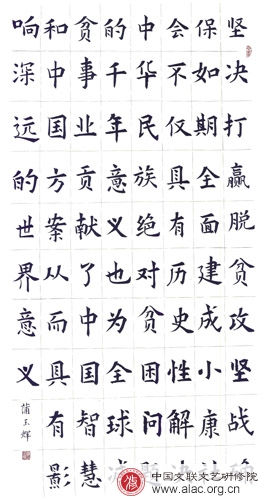 坚决打赢脱贫攻坚战
保如期全面建成小康
会不仅具有历史性解
中华民族绝对贫困问
的千年意义也为全球
贫事业贡献了中国智慧
和中国方案从而具有影
响深远的世界意义
蒲玉辉
中国文联文艺研修院
www.alac.org.cn